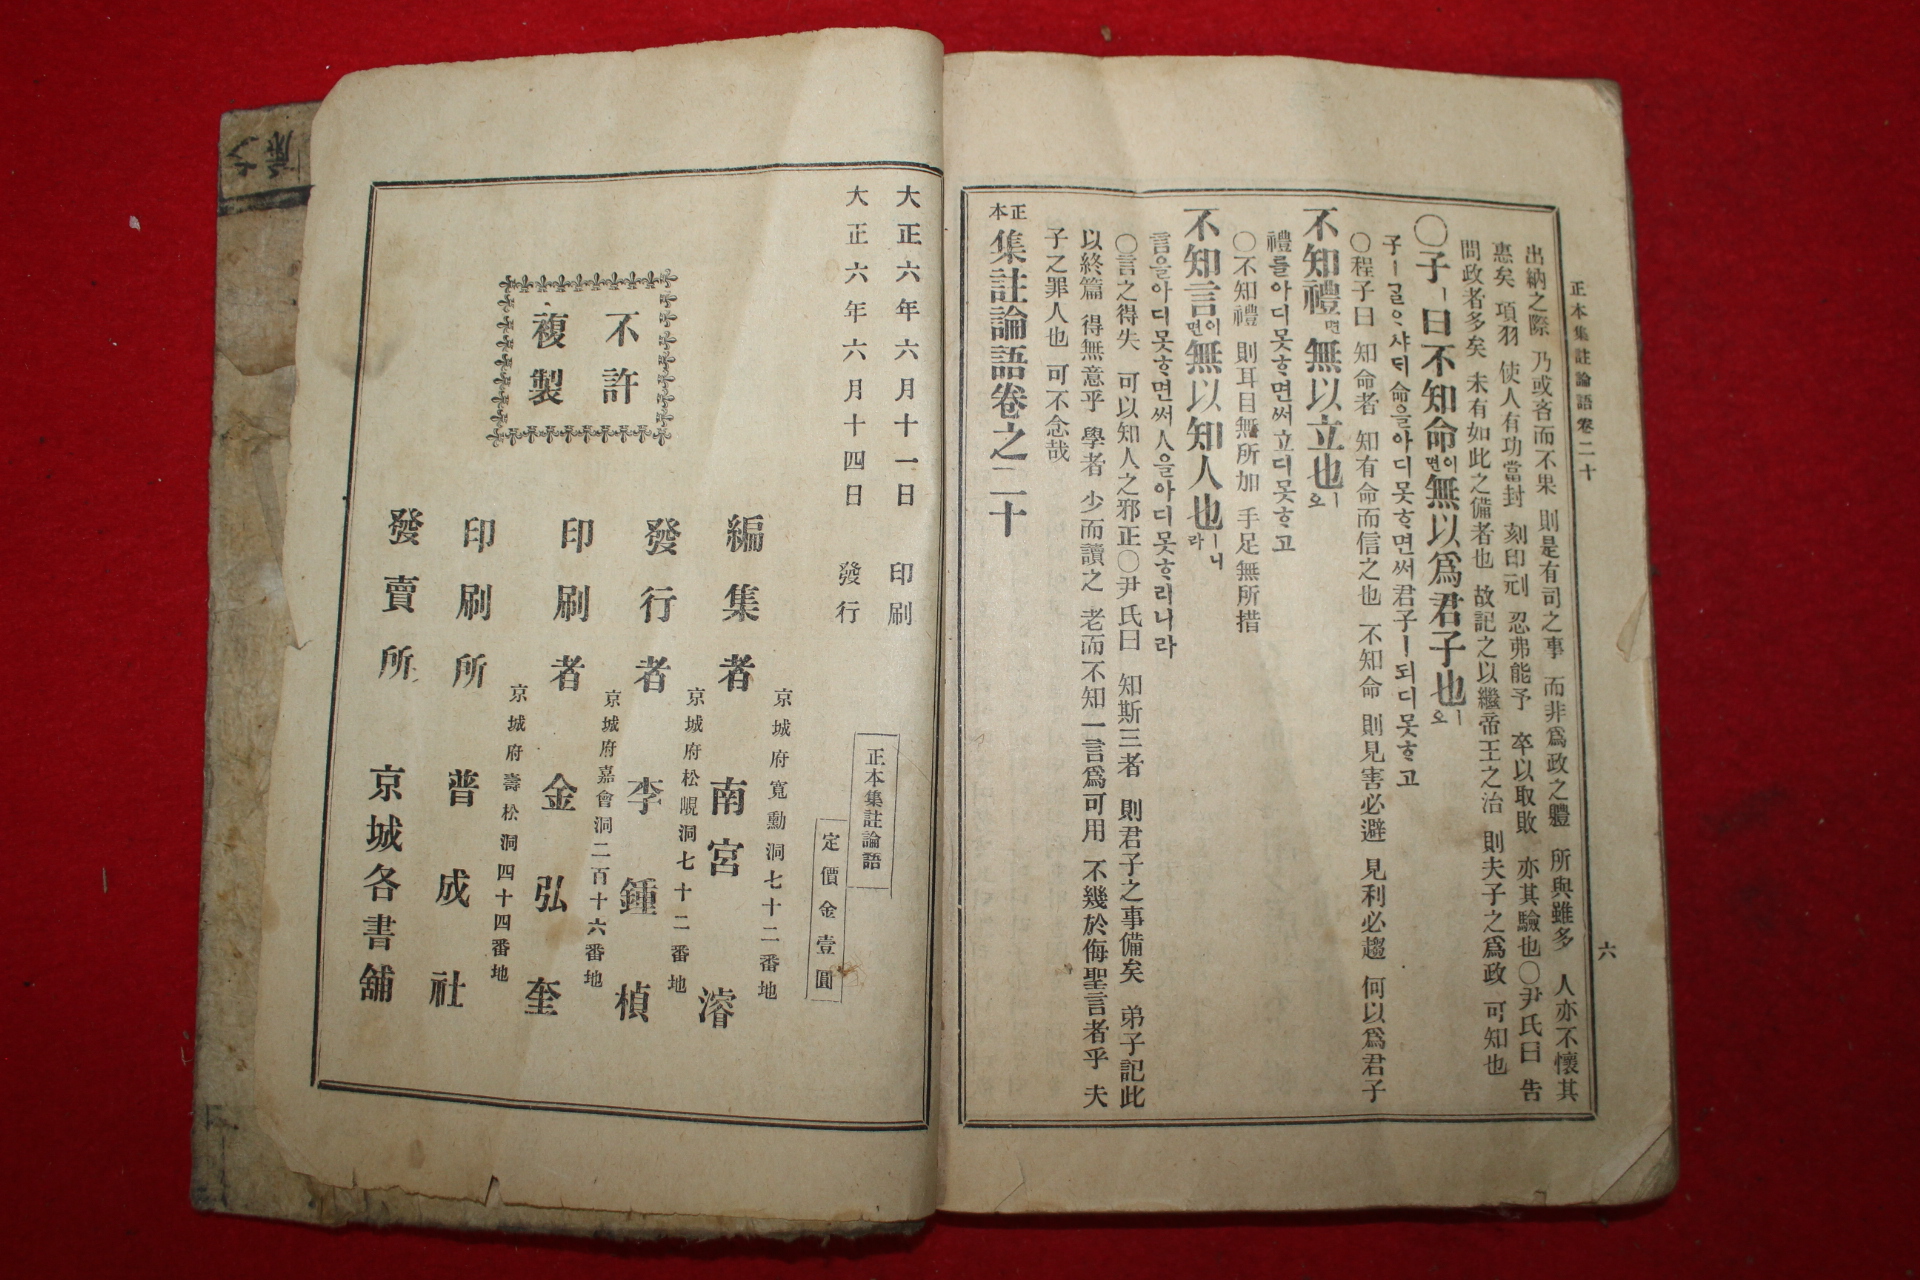 正本集註論語卷二十
六
出納之際 乃或吝而不果 則是有司之事 而非爲政之體 所與雖多 人亦不懷其
惠矣 項羽 使人有功當封 刻印刓 忍弗能予 卒以取敗 亦其驗也○尹氏曰 告
問政者多矣 未有如此之備者也 故記之以繼帝王之治 則夫子之爲政 可知也
○子ㅣ曰不知命이면無以爲君子也ㅣ오
子ㅣᄀᆞᆯᄋᆞ샤ᄃᆡ命을아디못ᄒᆞ면써君子ㅣ되디못ᄒᆞ고
○程子曰 知命者 知有命而信之也 不知命 則見害必避 見利必趨 何以爲君子
不知禮면無以立也ㅣ오
禮를아디못ᄒᆞ면써立디못ᄒᆞ고
○不知禮 則耳目無所加 手足無所措
不知言이면無以知人也ㅣ니라
言을아디못ᄒᆞ면써人을아디못ᄒᆞ리니라
○言之得失 可以知人之邪正○尹氏曰 知斯三者 則君子之事備矣 弟子記此
以終篇 得無意乎 學者 少而讀之 老而不知一言爲可用 不幾於侮聖言者乎 夫
子之罪人也 可不念哉
正本集註論語卷之二十
大正六年六月十一日 印刷
大正六年六月十四日 發行
正本集註論語
定價金壹圓
不許
複製
京城府寬勳洞七十二番地
編集者 南宮濬
京城府松峴洞七十二番地
發行者 李鍾楨
京城府嘉會洞二百十六番地
印刷者 金弘奎
京城府壽松洞四十四番地
印刷所 普成社
發賣所 京城各書舖